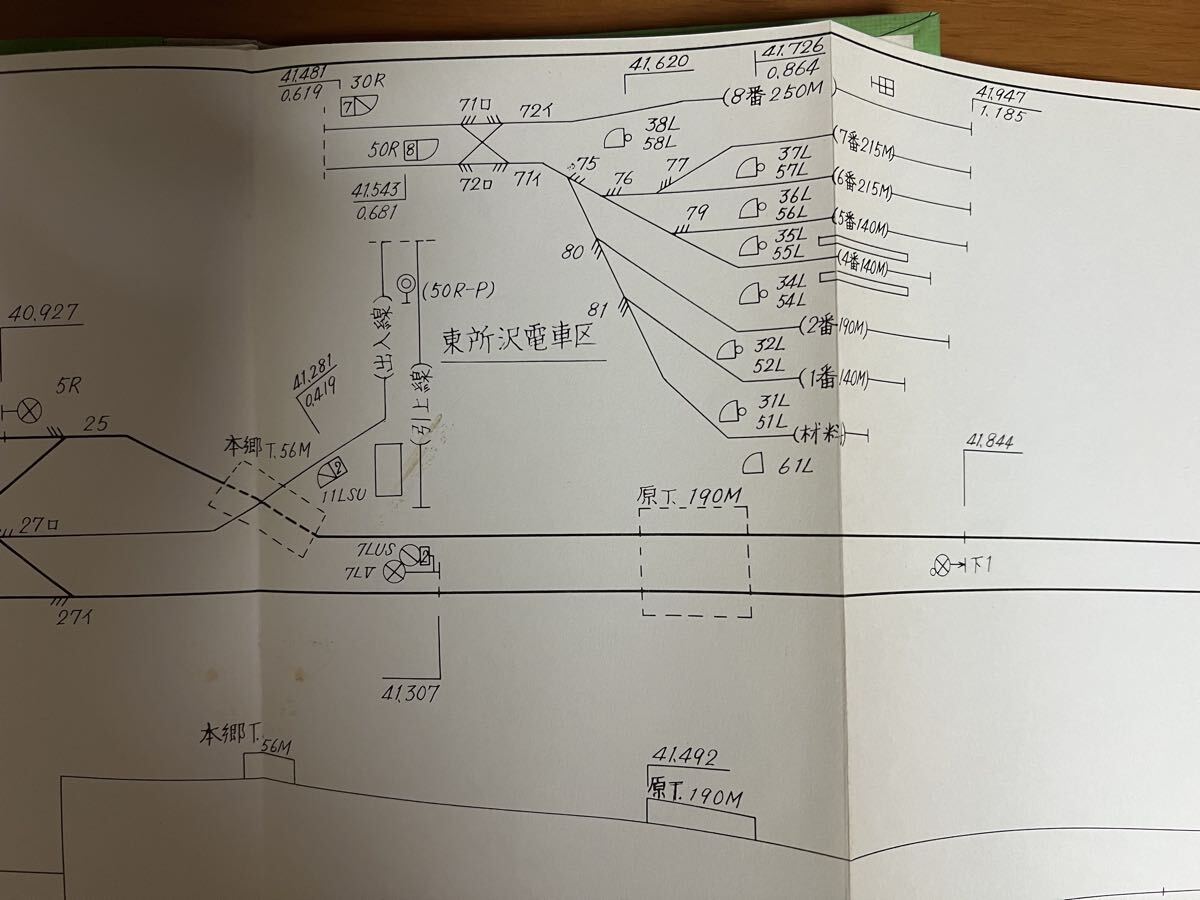 41.481
0.619
30R
7
71ロ
72イ
41.620
41.726
0.864
(8番250M)
41.947
1.185
50R
8
72ロ
71イ
75
76
77
79
38L
58L
37L
57L
(7番215M)
36L
56L
(6番215M)
35L
55L
(5番140M)
34L
54L
(4番140M)
41.543
0.681
80
81
32L
52L
(2番190M)
31L
51L
(1番140M)
61L
(材料)
(50R-P)
東所沢電車区
(出入線)
(引上線)
41.281
0.419
40.927
5R
25
本郷T.56M
2
11LSU
原T.190M
41.844
27ロ
7LUS
2
7LV
下1
27イ
41.307
本郷T.
56M
41.492
原T.190M